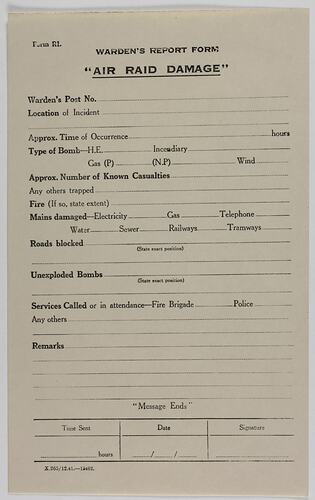 Form R1.
WARDEN'S REPORT FORM
"AIR RAID DAMAGE"
Warden's Post No.
Location of Incident
Approx. Time of Occurrence hours
Type of Bomb—H.E. Incendiary
Gas (P) (N.P) Wind
Approx. Number of Known Casualties
Any others trapped
Fire (If so, state extent)
Mains damaged—Electricity Gas Telephone
Water Sewer Railways Tramways
Roads blocked
(State exact position)
Unexploded Bombs
(State exact position)
Services Called or in attendance—Fire Brigade Police
Any others
Remarks
"Message Ends"
Time Sent Date Signature
hours / /
X.265/12.41.—15462.